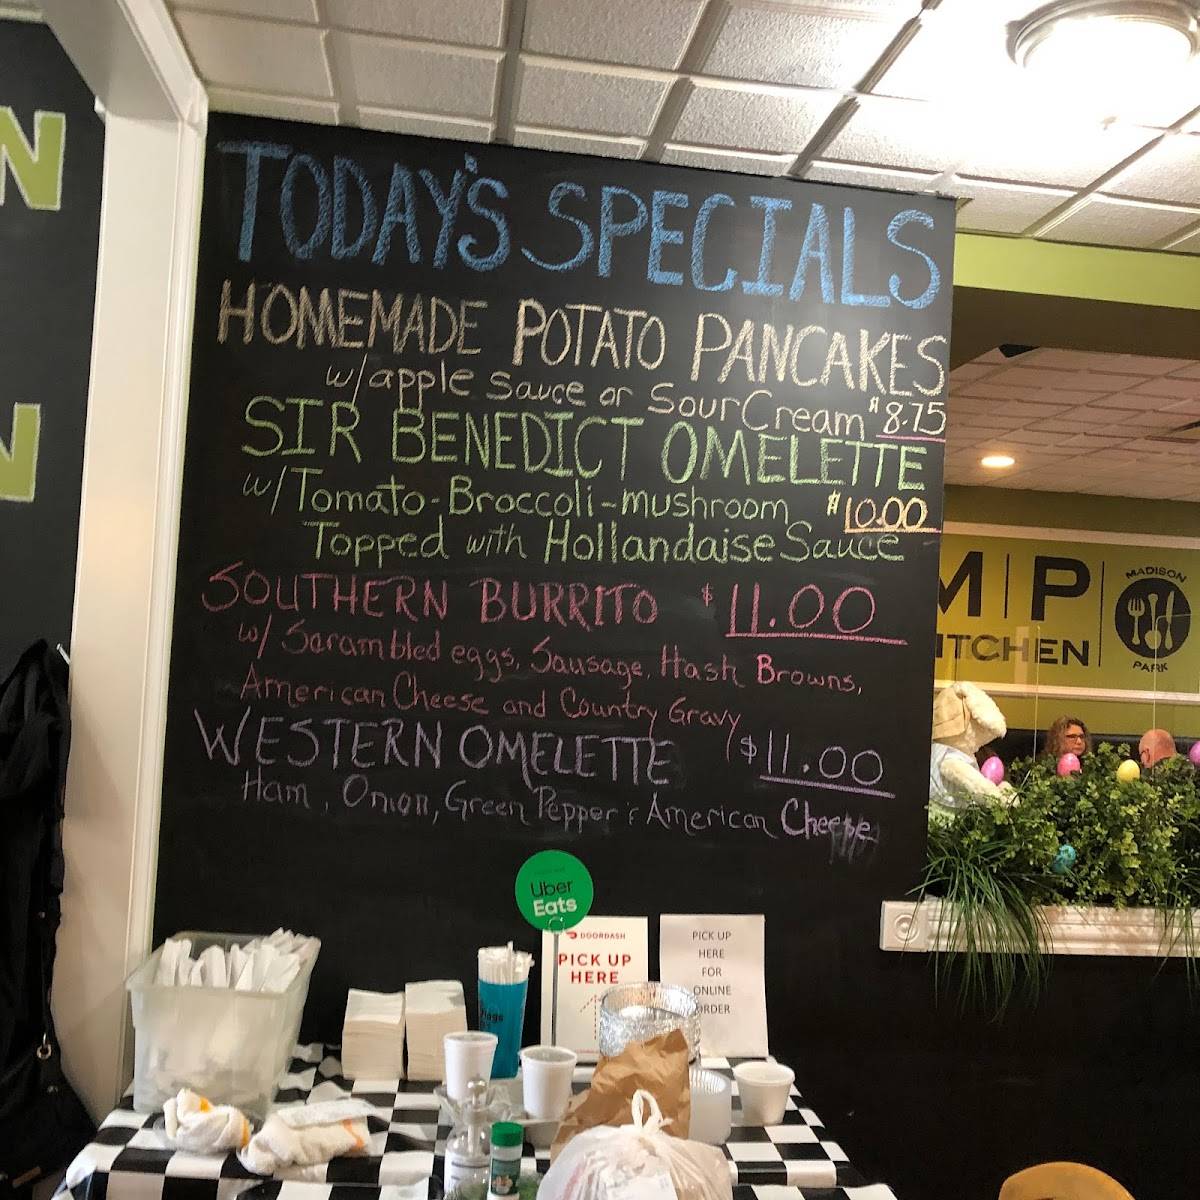 N
N
TODAY'S SPECIALS
HOMEMADE POTATO PANCAKES
w/apple sauce or Sour Cream $8.75
SIR BENEDICT OMELETTE
w/Tomato-Broccoli-mushroom $10.00
Topped with Hollandaise Sauce
SOUTHERN BURRITO $11.00
w/ Scrambled eggs, Sausage, Hash Browns,
American Cheese and Country Gravy
WESTERN OMELETTE $11.00
Ham, Onion, Green Pepper & American Cheese
M|P
ITCHEN
MADISON
PARK
Uber
Eats
DOORDASH
PICK UP
HERE
PICK UP
HERE
FOR
ONLINE
ORDER